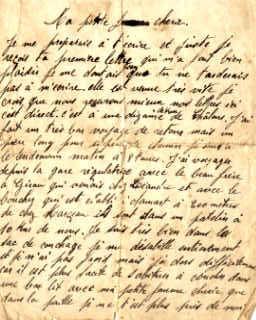 Ma petite femme chérie.
Je me preparais à t'écrire et juste je
reçois ta première lettre qui m'a fait bien
plaisir je me doutais que tu ne tarderais
pas à m'écrire. elle est venue très vite je
crois que nous aurons mieux nos lettres ici
c'est direct. c'est a une dizaine de Châlons. J'ai
fait un très bon voyage de retour mais un
le lendemain matin à heures. J'ai voyagé
depuis la gare régulatrice avec le beau frère
à et avec le
boucher qui est établi à 200 mètres
de chez sont dans un patelin à
10 km de nous. Je suis très bien dans les
sac de couchage je me deshabille entièrement
et je n'ai pas froid mais je dors difficilement
car il est plus facile de s'habituer à coucher dans
un bon lit avec ma petite femme chérie que
dans la paille je n'ai plus près de moi